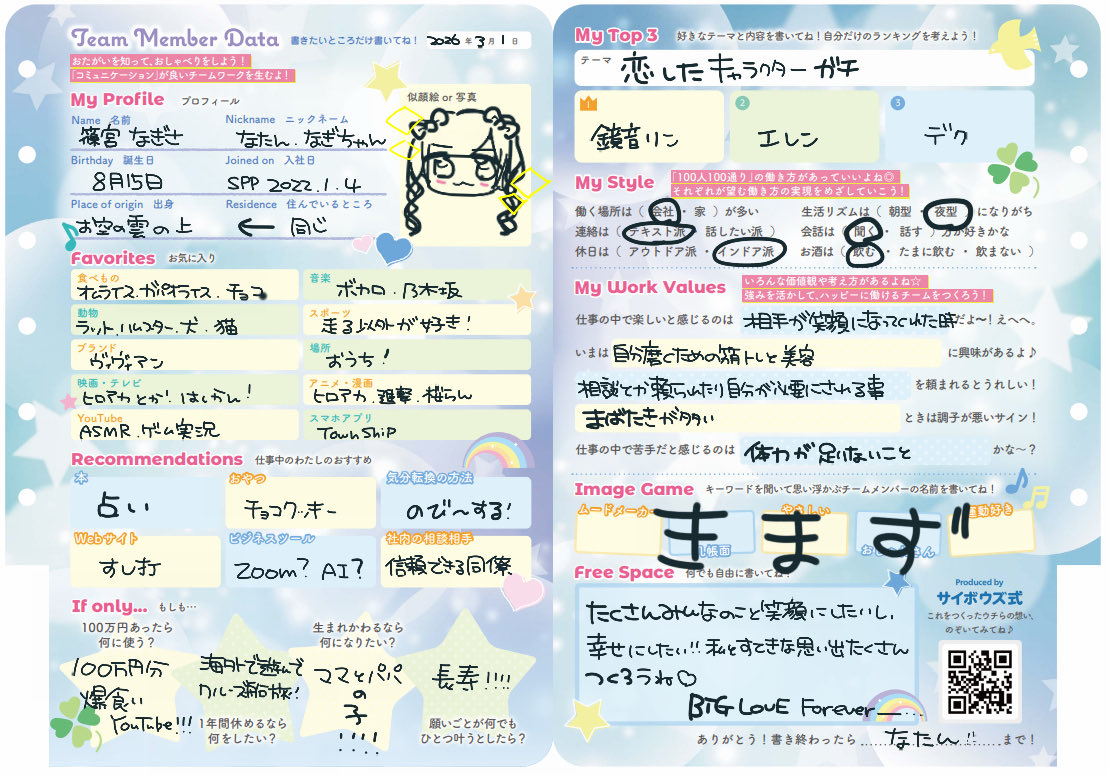 Team Member Data 書きたいところだけ書いてね! 2026年3月1日
おたがいを知って、おしゃべりをしよう!
「コミュニケーション」が良いチームワークを生むよ!
My Profile プロフィール
似顔絵 or 写真
Name 名前
篠宮 なぎさ
Nickname ニックネーム
なたん、なぎちゃん
Birthday 誕生日
8月15日
Joined on 入社日
SPP 2022.1.4
Place of origin 出身
お空の雲の上
Residence 住んでいるところ
← 同じ
Favorites お気に入り
食べもの
オムライス.ガパオライス.チョコ
音楽
ボカロ.乃木坂
動物
ラット.ハムスター.犬.猫
スポーツ
走る以外が好き!
ブランド
ヴィヴィアン
場所
おうち!
映画・テレビ
ヒロアカとか!はしかん!
アニメ・漫画
ヒロアカ.進撃.桜らん
YouTube
ASMR.ゲーム実況
スマホアプリ
TownShip
Recommendations 仕事中のわたしのおすすめ
本
占い
おやつ
チョコクッキー
気分転換の方法
のび〜する!
Webサイト
すし打
ビジネスツール
Zoom? AI?
社内の相談相手
信頼できる同僚
If only... もしも…
100万円あったら
何に使う?
100万円分
爆食い
YouTube!!!
海外で遊んで
クルーズ船の旅!
1年間休めるなら
何をしたい?
生まれかわるなら
何になりたい?
ママとパパ
の
子
!!!!
長寿!!!!
願いごとが何でも
ひとつ叶うとしたら?
My Top 3 好きなテーマと内容を書いてね!自分だけのランキングを考えよう!
テーマ
恋したキャラクターガチ
1
鏡音リン
2
エレン
3
デク
My Style
「100人100通り」の働き方があっていいよね◎
それぞれが望む働き方の実現をめざしていこう!
働く場所は(会社・家)が多い
生活リズムは(朝型・夜型)になりがち
連絡は(テキスト派・話したい派)
会話は(聞く・話す)方が好きかな
休日は(アウトドア派・インドア派)
お酒は(飲む・たまに飲む・飲まない)
My Work Values
いろんな価値観や考え方があるよね☆
強みを活かして、ハッピーに働けるチームをつくろう!
仕事の中で楽しいと感じるのは 相手が笑顔になってくれた時だよ〜!えへへ。
いまは 自分磨くための筋トレと美容 に興味があるよ♪
相談とか頼られたり自分が必要にされる事 を頼まれるとうれしい!
まばたきが多い ときは調子が悪いサイン!
仕事の中で苦手だと感じるのは 体力が足りないこと かな〜?
Image Game キーワードを聞いて思い浮かぶチームメンバーの名前を書いてね!
ムードメーカー
几帳面
やさしい
運動好き
きまず
Free Space 何でも自由に書いてね!
たくさんみんなのこと笑顔にしたいし、
幸せにしたい!!私とすてきな思い出たくさん
つくろうね♡
BTG LOVE Forever
Produced by
サイボウズ式
これをつくったウチらの想い、
のぞいてみてね♪
ありがとう!書き終わったら なたん!! まで!